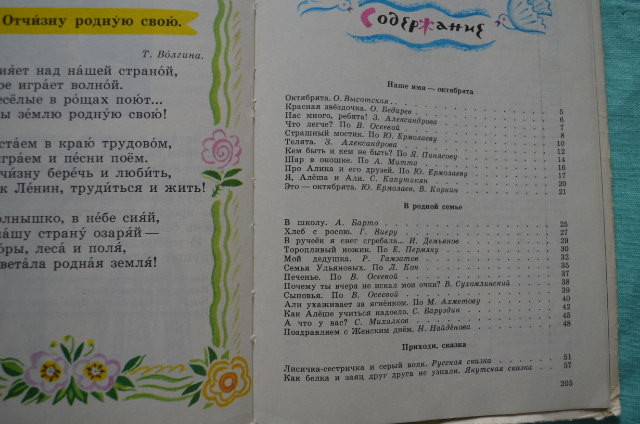 Отчи́зну родну́ю свою́.
Т. Во́лгина.
ия́ет над на́шей страно́й,
ре игра́ет волно́й.
есёлые в ро́щах пою́т...
ы зе́млю родну́ю свою́!
стаём в краю́ трудово́м,
гра́ем и пе́сни поём.
чи́зну бере́чь и люби́ть,
к Ле́нин, труди́ться и жить!
о́лнышко, в не́бе сия́й,
на́шу страну́ озаря́й —
о́ры, леса́ и поля́,
вета́ла родна́я земля́!
Содержание
Наше имя — октябрята
Октябрята. О. Высотская . .
Красная звёздочка. О. Бедарев 5
Нас много, ребята! З. Александрова 6
Что легче? По В. Осеевой 7
Страшный мостик. По Ю. Ермолаеву 8
Телята. З. Александрова 10
Кем быть и кем не быть? По Я. Пинясову 12
Шар в окошке. По А. Митта 14
Про Алика и его друзей. По Ю. Ермолаеву 16
Я, Алёша и Али. С. Капутикян 20
Это — октябрята. Ю. Ермолаев, В. Коркин 21
В родной семье
В школу. А. Барто 25
Хлеб с росою. Г. Виеру 27
В ручеёк я снег сгребала... И. Демьянов 29
Торопливый ножик. По Е. Пермяку 30
Мой дедушка. Р. Гамзатов 32
Семья Ульяновых. По Л. Кон 35
Печенье. По В. Осеевой 37
Почему ты вчера не искал мои очки? В. Сухомлинский 38
Сыновья. По В. Осеевой 39
Али ухаживает за ягнёнком. По М. Ахметову 40
Как Алёше учиться надоело. С. Баруздин 42
А что у вас? С. Михалков 45
Поздравляем с Женским днём. Н. Найдёнова 48
Приходи, сказка
Лисичка-сестричка и серый волк. Русская сказка 51
Как белка и заяц друг друга не узнали. Якутская сказка 57
205